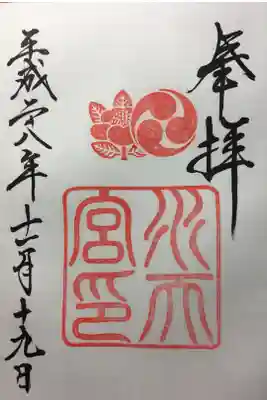 奉拝
水天
宮印
平成二十八年十一月十九日